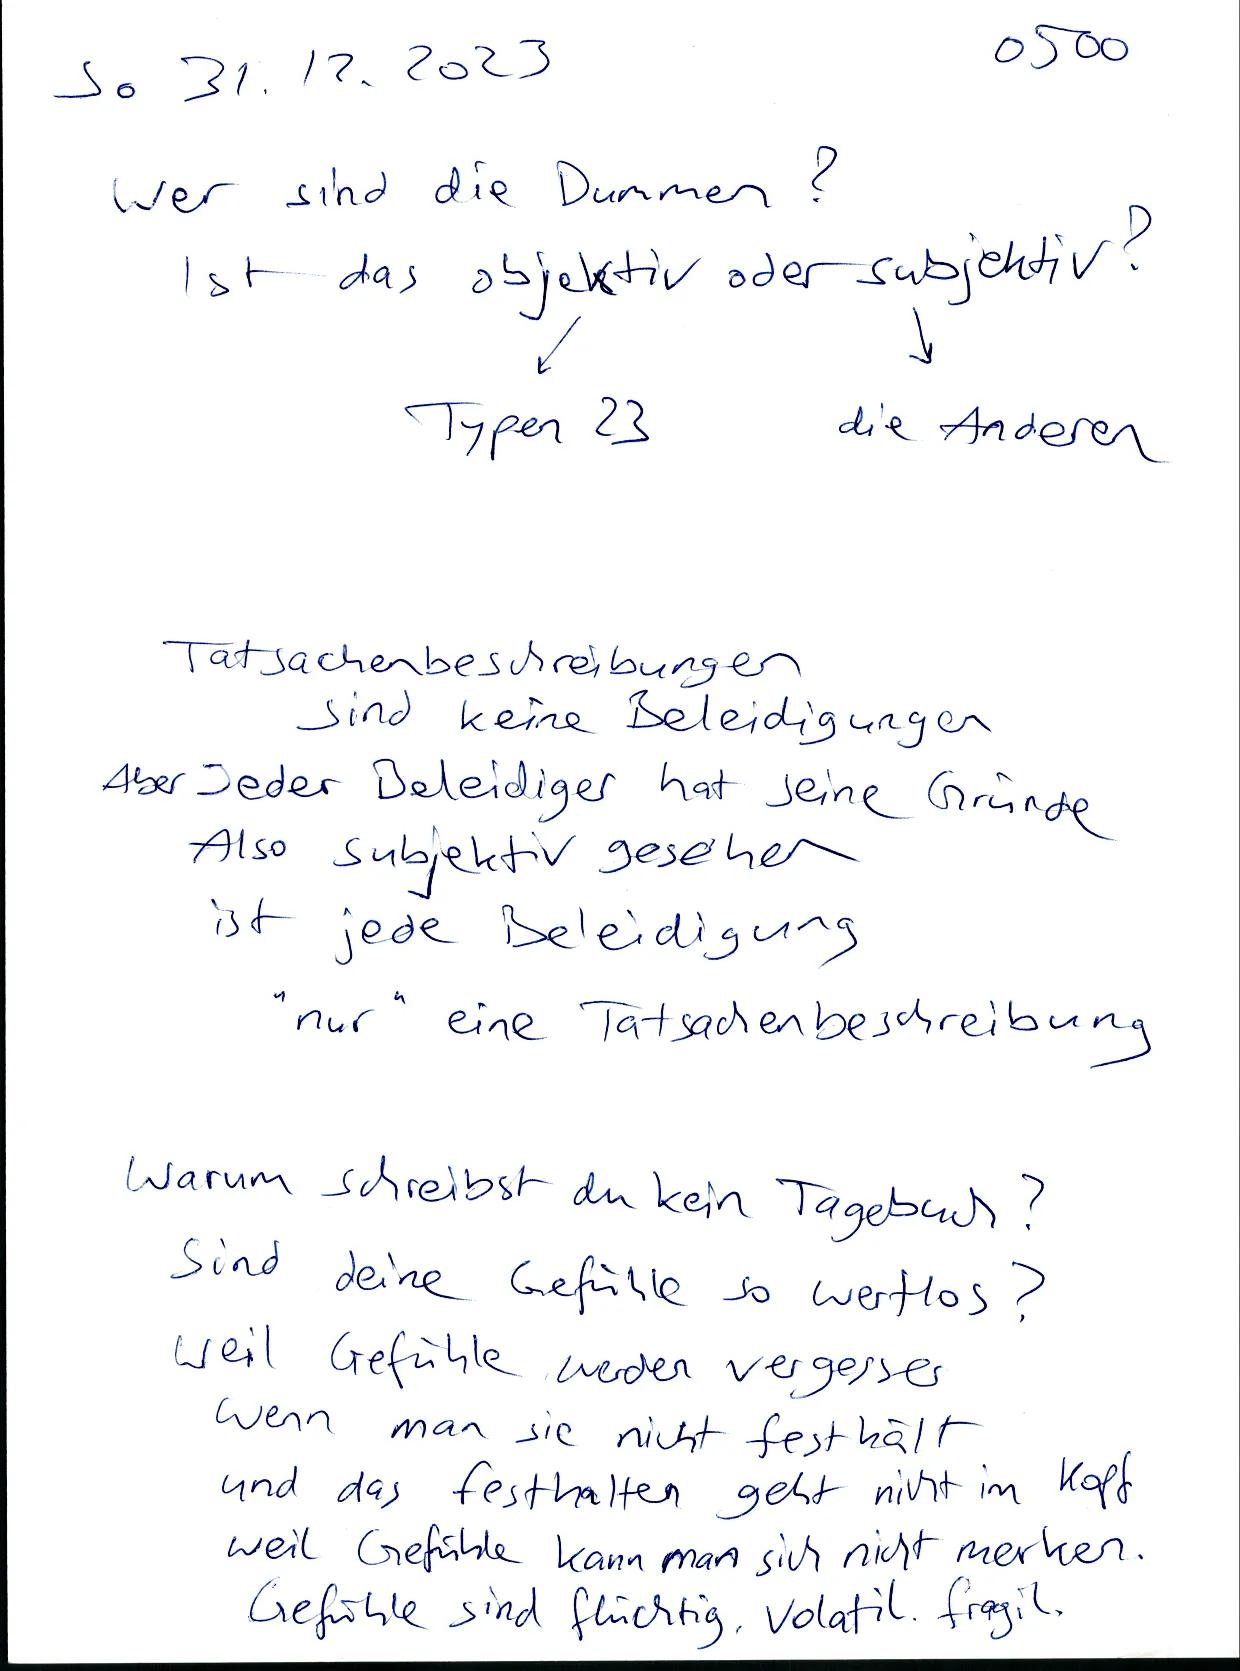 So 31.12.2023 0500
Wer sind die Dummen?
Ist das objektiv oder subjektiv?
↙ ↓
Typen 23 die Anderen
Tatsachenbeschreibungen
sind keine Beleidigungen
Aber Jeder Beleidiger hat seine Gründe
Also subjektiv gesehen
ist jede Beleidigung
"nur" eine Tatsachenbeschreibung
Warum schreibst du kein Tagebuch?
Sind deine Gefühle so wertlos?
Weil Gefühle werden vergessen
wenn man sie nicht festhält
und das festhalten geht nicht im Kopf
weil Gefühle kann man sich nicht merken.
Gefühle sind flüchtig. volatil. fragil.